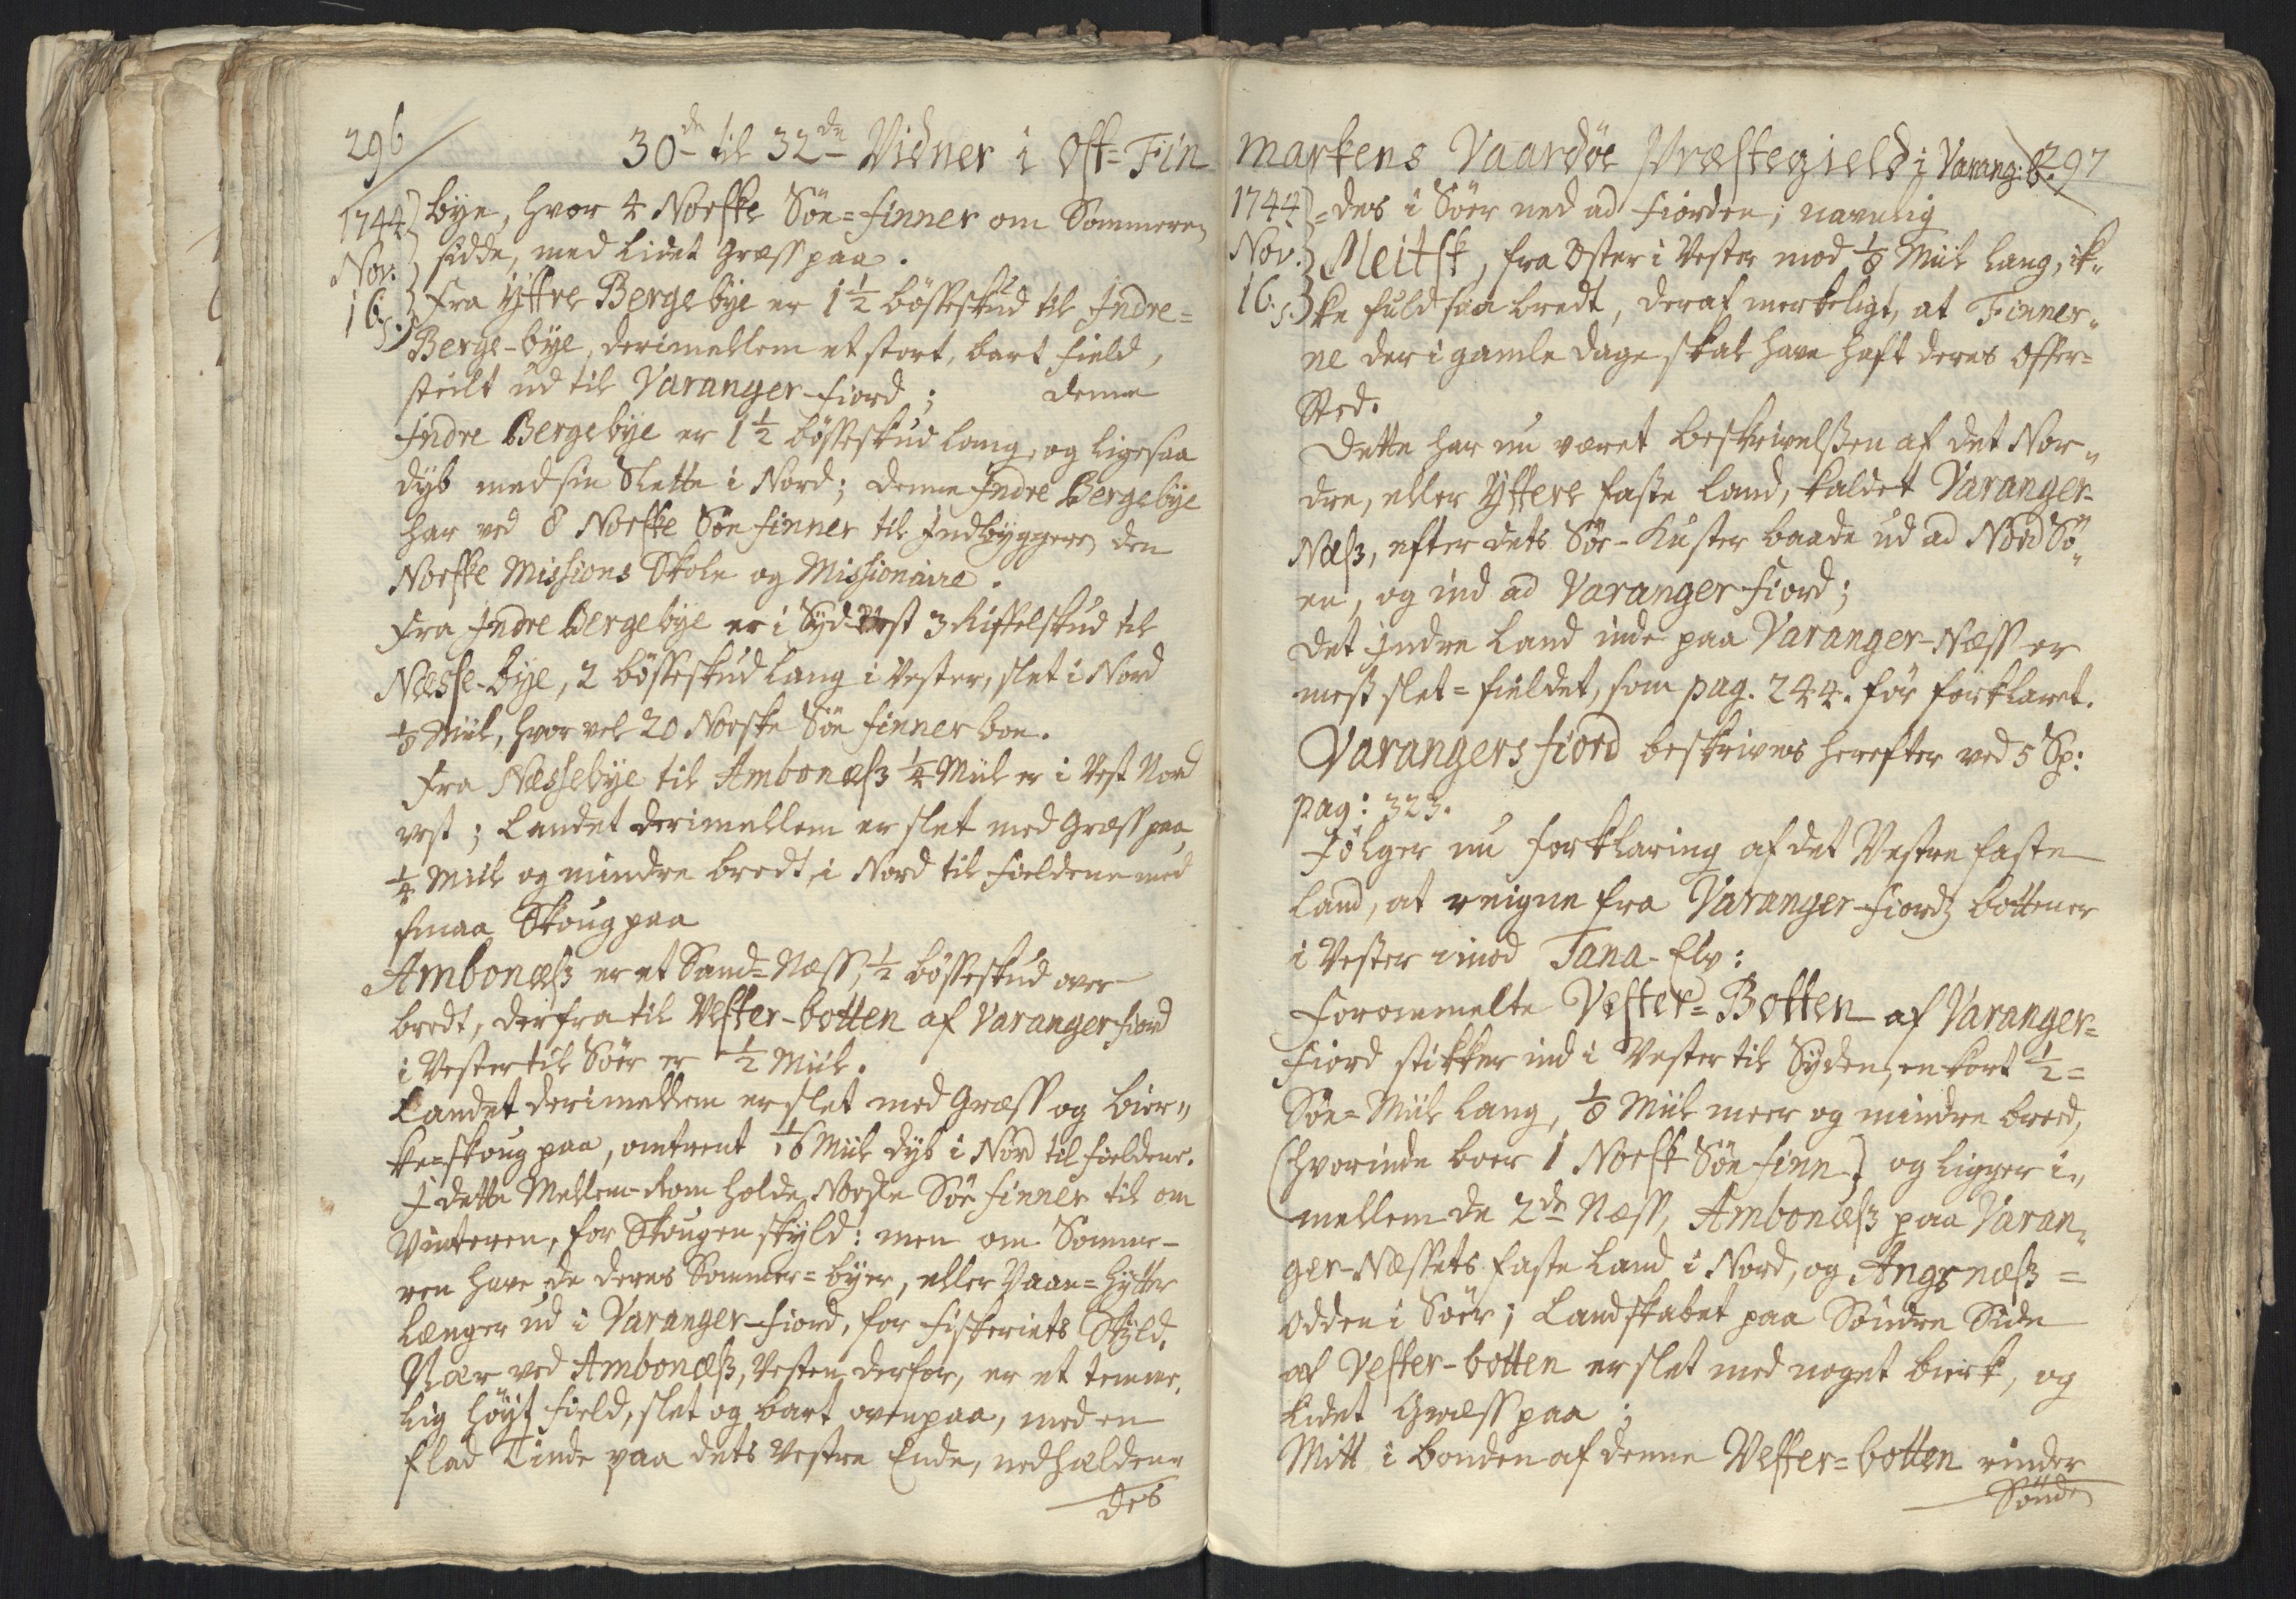 296
30de til 32de Vidner i Ost=Fin
1744
Nov:
16.
bye, hvor 4 Norske Söe=finner om Sommeren
sidde, med lidet Græss paa.
Fra Yttre Bergebye er 1½ bösseskud til Indre=
Berge-bye, derimellem et stort, bart field,
steilt ud til Varanger-fiord; denne
Indre Bergebye er 1½ bösseskud lang, og ligesaa
dyb med sin Slette i Nord; denne Indre Bergebye
har ved 8 Norske Söe finner til Indbyggere, den
Norske Missions Skole og Missionaire.
Fra Indre Bergebye er i Syd-Vest 3 Riffelskud til
Næsse-bye, 2 bösseskud lang i Vester, slet i Nord
⅛ Miil, hvor vel 20 Norske Söe finner boe.
Fra Næssebye til Ambonæss ¼ Miil er i Vest Nord
vest; Landet derimellem er slet med Græss paa,
¼ Miil og mindre bredt, i Nord til fieldene med
smaa Skoug paa
Ambonæss er et Sand=Næss, ½ bösseskud over
bredt, derfra til Vester-botten af Varanger fiord
i Vester til Söer er ½ Miil.
Landet derimellem er slet med Græss og bier„
ke=skoug paa, omtrent 1/16 Miil dyb i Nord til fieldene.
I dette Mellem-Rom holde Norske Söe finner til om
Vinteren, for Skougens skyld: men om Somme-
ren have de deres Sommer=byer, eller Vaan=hytter
længer ud i Varanger-fiord, for fiskeriets Skyld.
Nær ved Ambonæss, Vesten derfor, er et temme„
lig höyt field, slet og bart ovenpaa, med en
flad Tinde paa dets Vestre Ende, nedhælden„
des
markens Vaardöe Præstegield i Varang: 297
1744
Nov:
16.
=des i Söer ned ad fiorden; navnlig
Meitsk, fra Oster i Vester mod ⅛ Miil lang, ik„
ke fuld saa bredt, deraf merkeligt, at Finner„
ne der i gamle dage skal have haft deres Offer=
Sted.
Dette har nu været beskrivelssen af det Nor„
dre, eller Yttere faste land, kaldet Varanger-
Næss, efter dets Söe-Kuster baade ud ad NordSö„
en, og ind ad Varanger fiord;
det Indre land inde paa Varanger-Næss er
mest slet=fieldet, som pag. 244. för forklaret.
Varangers fiord beskrives herefter ved 5 Sp:
pag: 323.
Fölger nu forklaring af det Vestre faste
land, at reigne fra Varanger-fiords bottener
i Vester imod Tana-Elv:
Forommelte Vester=Botten af Varanger=
fiord stikker ind i Vester til Syden, en kort ½=
Söe=Miil lang, ⅛ Miil meer og mindre breed,
(hvorinde boer 1 Norsk Söe finn) og ligger i„
mellem de 2de Næss, Ambonæss paa Varan„
ger-Næssets faste land i Nord, og Angsnæss=
odden i Söer; Landskabet paa Söndre Side
af Vester-botten er slet med noget birk, og
lidet Græss paa;
Mitt i bonden af denne Vester=botten rinder
Sönd